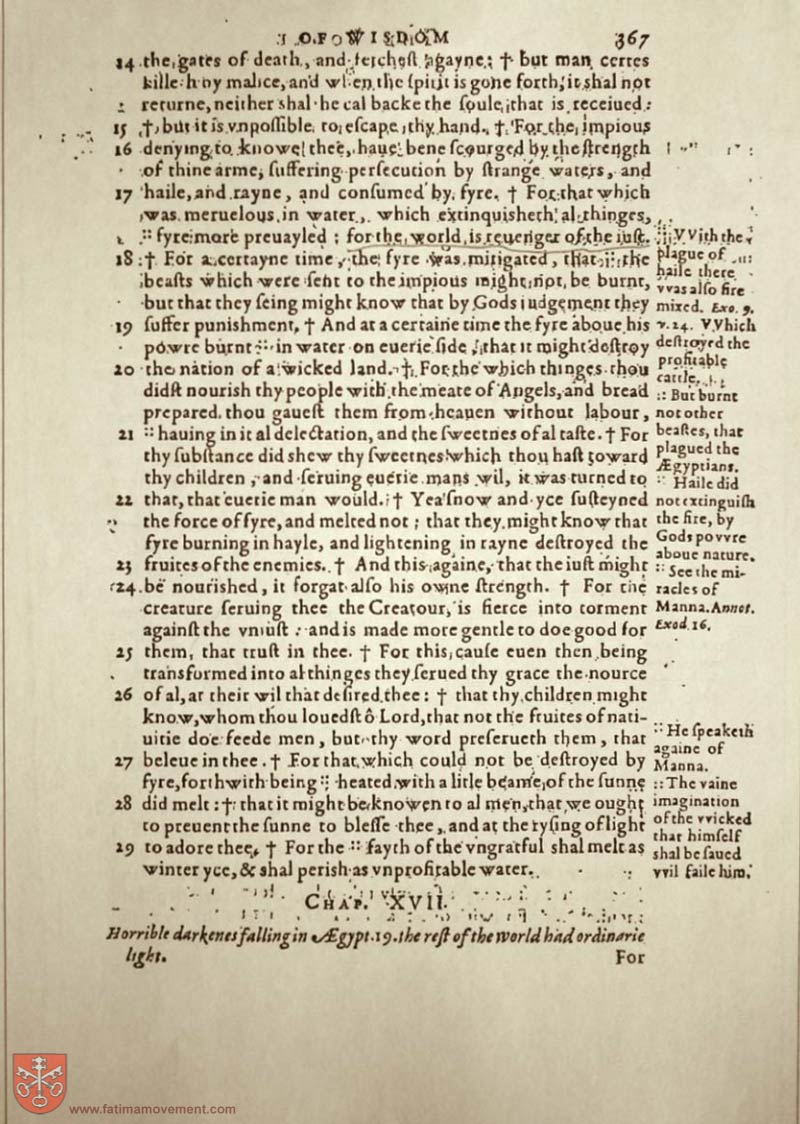 OF WISDOM 367
14 the gates of death, and fetchest agayne: † but man certes
killeth by malice, and when the spirit is gone forth, it shal not
returne, neither shal he cal backe the soule that is receiued:
15 † but it is vnpossible to escape thy hand. † For the impious
16 denying to know thee, haue bene scourged by the strength
of thine arme, suffering persecution by strange waters, and
17 haile, and rayne, and consumed by fyre. † For that which
was meruelous in water, which extinguisheth al thinges,
:: fyre more preuayled: for the world is reuenger of the iust.
18 † For a certayne time, the fyre was mitigated, that :: the
beasts which were sent to the impious might not be burnt,
but that they seing might know that by Gods iudgement they
19 suffer punishment, † And at a certaine time the fyre aboue his
powre burnt :: in water on euerie side, that it might destroy
20 the nation of a wicked land. † For the which thinges thou
didst nourish thy people with the meate of Angels, and bread
prepared thou gauest them from heauen without labour,
21 :: hauing in it al delectation, and the sweetnes of al taste. † For
thy substance did shew thy sweetnes which thou hast toward
thy children, and seruing euerie mans wil, it was turned to
22 that, that euerie man would. † Yea snow and yce susteyned
the force of fyre, and melted not; that they might know that
fyre burning in hayle, and lightening in rayne destroyed the
23 fruites of the enemies. † And this againe, that the iust might
24 be nourished, it forgat also his owne strength. † For the
creature seruing thee the Creatour, is fierce into torment
against the vniust: and is made more gentle to doe good for
25 them, that trust in thee. † For this cause euen then being
transformed into al thinges they serued thy grace the nource
26 of al, at their wil that desired thee: † that thy children might
know, whom thou louedst ô Lord, that not the fruites of nati-
uitie doe feede men, but thy word preserueth them, that
27 beleue in thee. † For that which could not be destroyed by
fyre, forthwith being :: heated with a litle beame of the sunne
28 did melt: † that it might be knowen to al men, that we ought
to preuent the sunne to blesse thee, and at the rysing of light
29 to adore thee. † For the :: fayth of the vngratful shal melt as
winter yce, & shal perish as vnprofitable water.
:: VVith the
plague of
haile there
vvas also fire
mixed. Exo. 9.
v. 24. VVhich
destroyed the
profitable
cattle.
:: But burnt
not other
beastes, that
plagued the
Ægyptians.
:: Haile did
not extinguish
the fire, by
Gods povvre
aboue nature.
:: See the mi-
racles of
Manna. Annot.
Exod. 16.
:: He speaketh
againe of
Manna.
:: The vaine
imagination
of the vvicked
that himself
shal be saued
vvil faile him.
CHAP. XVII.
Horrible darkenes falling in Ægypt. 19. the rest of the world had ordinarie
light.
For
www.fatimamovement.com